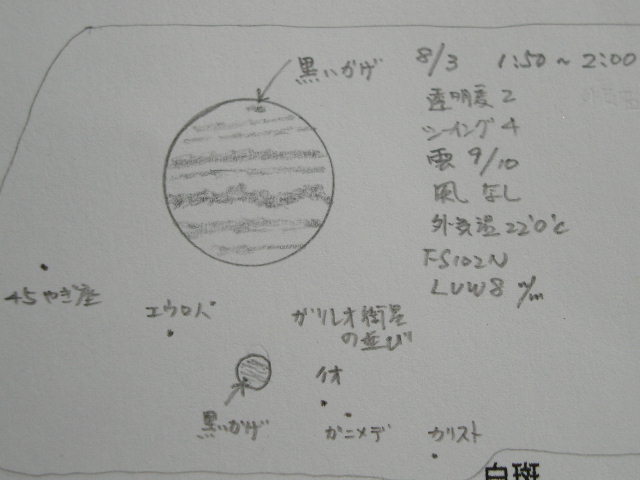 黒いかげ
8/3 1:50~2:00
透明度2
シイング4
雲9/10
風なし
外気温22.0℃
FS102N
LVW8 m/m
45やぎ座
エウロパ
ガリレオ衛星
の並び
イオ
黒いかげ
ガニメデ
カリスト
白斑